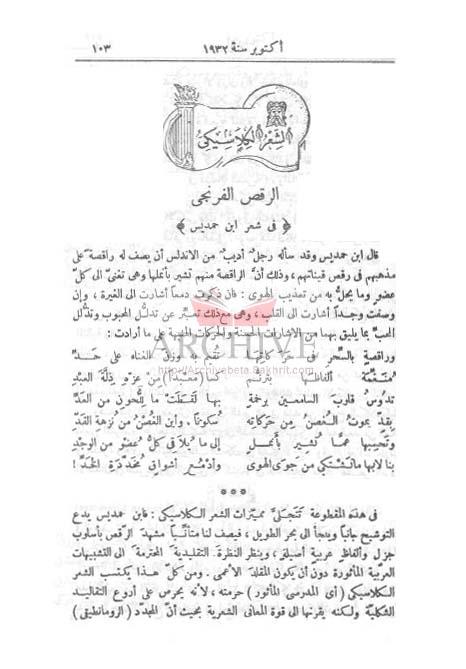 أكتوبر سنة ١٩٣٢
١٠٣
الشعر الكلاسيكي
الرقص الفرنجى
﴿ فى شعر ابن حمديس ﴾
قال ابن حمديس وقد سأله رجلٌ أديبٌ من الاندلس أن يصف له راقصةً على
مذهبهم فى رقص قيناتهم، وذلك أنَّ الراقصة منهم تشير بأنملها وهى تغنى الى كلّ
عضو وما يحلُّ به من تعذيب الهوى: فان ذكرت دمعاً أشارت الى الغيرة، وإن
وصفت وجداً أشارت الى القلب، وهى مع ذلك تعبّر عن تدلُّل المحبوب وتذلُّل
المحبِّ بما يليق بهما من الاشارات الحسنة والحركات المنبهة على ما أرادت:
وراقصةٍ بالسِّحر فى حركاتها تُقيم به وزنَ الغناء على حَدِّ
مُنغِّمة ألفاظها بترنُّمٍ كسا (معبداً) من عزّه ذِلَّة العبدِ
تدوسُ قلوبَ السامعين برخمةٍ بها لَقَطَت ما للُّحون من العَدِّ
بقدٍّ يموتُ الغُصن من حركاته سكوناً. وأين الغُصْنُ من نزهة القدِّ
وتحسبها عمَّا تُشير بأنملٍ إلى ما يُلاقى كلُّ عضوٍ من الوجْدِ
بنا لا بها ما تشتكى من جوى الهوى وأدمُعِ أشواقٍ مُخدَّدة الخدِّ!
***
فى هذه المقطوعة تتجلَّى مميزات الشعر الكلاسيكى: فابن حمديس يدع
التوشيح جانباً ويلجأ الى بحر الطويل، فيصف لنا متأنياً مشهد الرقص بأسلوب
جزل وألفاظٍ عربية أصيلة، وينظر النظرة التقليدية المحترمة الى التشبيهات
العربية المأثورة دون أن يكون المقلدَ الأعمى. ومن كلّ هذا يكتسب الشعر
الكلاسيكى (أى المدرسى المأثور) حرمته، لأنه يحرص على أروع التقاليد
الشكلية ولكنه يقرنها الى قوة المعانى الشعرية بحيث أن المجدّد (الرومانطيقى)
ARCHIVE
http://Archivebeta.Sakhrit.com